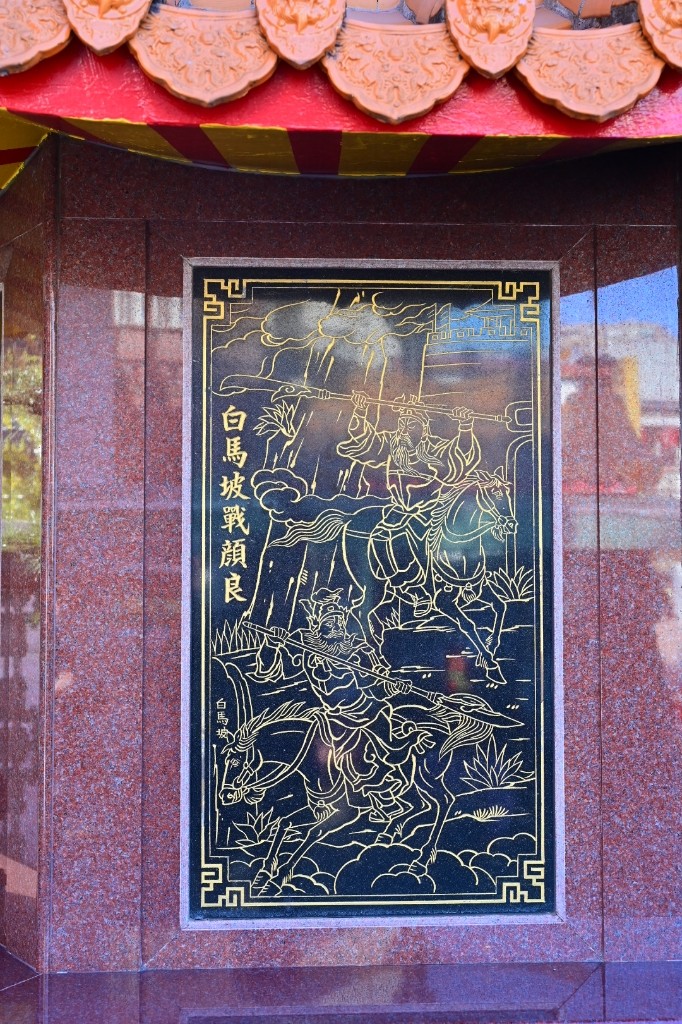 白馬坡戰顔良
白馬坡